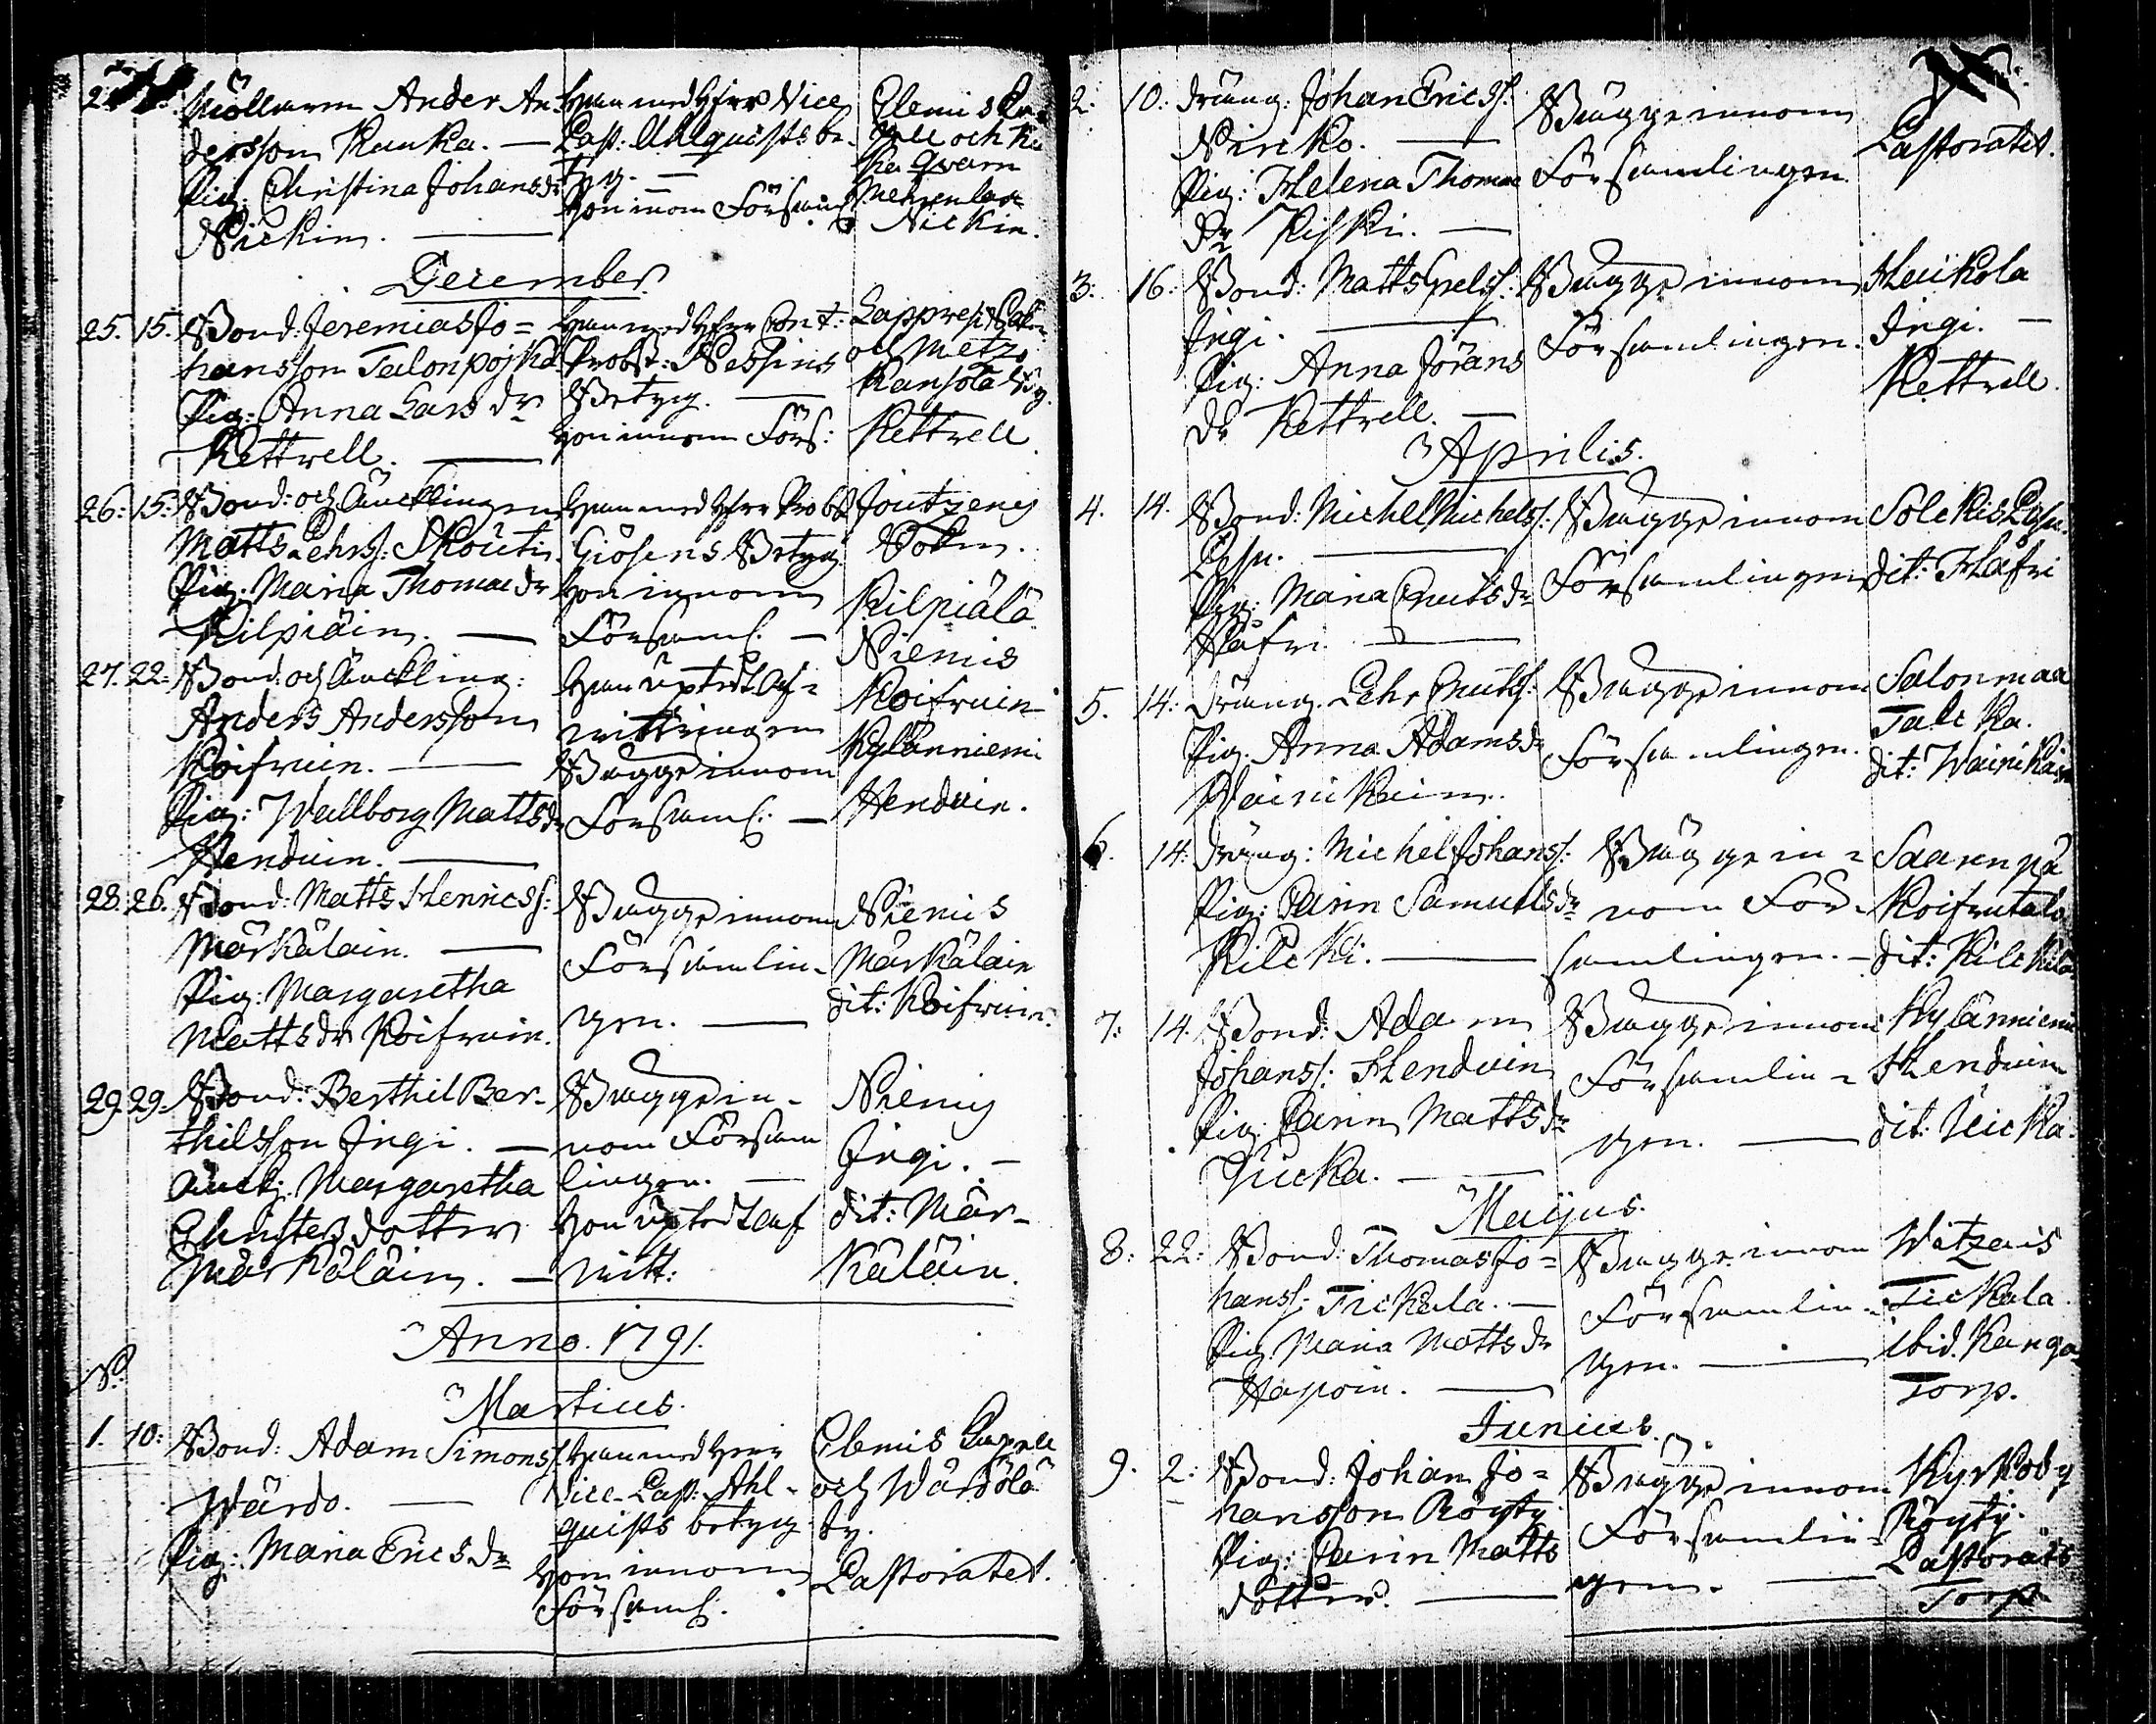 Möllaren Ander An-
dersson Kauka. —
Pig: Christina Johansdr
Nickin. —
Han med Hfrr Vice
Past: Ahlquists be-
tyg. —
Hon inom Församl
Clemis
och
qvarn
Nickin.
December
25. 15. Bond: Jeremias Jo=
hansson Talonpojka
Pig: Anna Lars dr
Kettrell. —
Han med Hfrr Cont:
Probst: Nessius
Betyg. —
Hon innom Förs:
och Metz
Kansola By.
Kettrell
26: 15: Bond: och Äncklingen
Matts Pehrs: Skouti
Pig. Maria Thomae dr
Kilpiäin. —
Han med Hfrr Probst
Giösens Betyg
Hon innom
Församl. —
Joutzeng
Sokn.
Kilpiälä
27. 22: Bond: och Änckling:
Anders Andersson
Koifvuin. —
Pig: Wallborg Mattsdr
Henduin. —
Han uptedt Af=
wittringen
Bägge innom
Församl: —
Niemis
Koifvuin
Kylänniemi
Henduin.
28. 26. Bond: Matts Henricss:
Märkäläin. —
Pig: Margaretha
Mattsdr Koifvuin.
Bägge innom
Församlin-
gen. —
Niemis
Märkäläin
dit: Koifvuin.
29. 29. Bond: Berthil Ber-
thilsson Ingi. —
Änck: Margaretha
Christersdotter
Märkäläin. —
Bägge in-
nom Försam
lingen. —
Hon uptedt Af
witt:
Niemis
Ingi. —
dit: Mär-
käläin.
Anno. 1791.
No
Martius.
1. 10: Bond: Adam Simonss:
Wärdo. —
Pig: Maria Erics dr
Han med Herr
Vice-Past: Ahl-
quists betyg
Hon innom
Församl:
Clemis Capell
och Wärdölä
by.
Pastoratet.
2: 10: Dräng: Johan Ericss:
Nirko. —
Pig: Helena Thomae
Dr Kiski. —
Bägge innom
Församlingen.
Pastoratet.
3: 16: Bond: Matts
Ingi. —
Pig: Anna Jörans
dr Kettrell. —
Bägge innom
Församlingen.
Heikola
Ingi. —
Kettrell.
Aprilis.
4. 14. Bond: Michel Michelss:
Pesu. —
Pig: Maria Cnuts dr
Häfri —
Bägge innom
Församlingen
Solckis Pesu.
dit: Häfri
5. 14: Dräng. Pehr Cnuts:
Pig. Anna Adamsdr
Wainikain.
Bägge innom
Församlingen.
Salonmaa
Talcka.
dit: Wainikain
6. 14: Dräng: Michel Johanss:
Pig: Carin Samuelsdr
Kilcki. —
Bägge in=
nom För-
samlingen. —
Saarenpä
Koifvutalo
dit: Kilckilä
7: 14. Bond: Adam
Johanss: Henduin
Pig: Carin Matts dr
Yucka. —
Bägge innom
Församlin=
gen. —
Kylänniemi
Henduin
Majus.
8: 22: Bond: Thomas Jo=
hanss: Tickala. —
Pig. Maria Matts dr
Hapoin. —
Bägge innom
Församlin-
gen. —
Witzais
Tickala.
ibid. Kanga
Torp.
Junius.
9. 2: Bond: Johan Jo=
hansson Röyty
Pig: Carin Matts
dotter. —
Bägge innom
Församlin-
gen. —
Kyrkoby
Röyty.
Pastorats
Torp